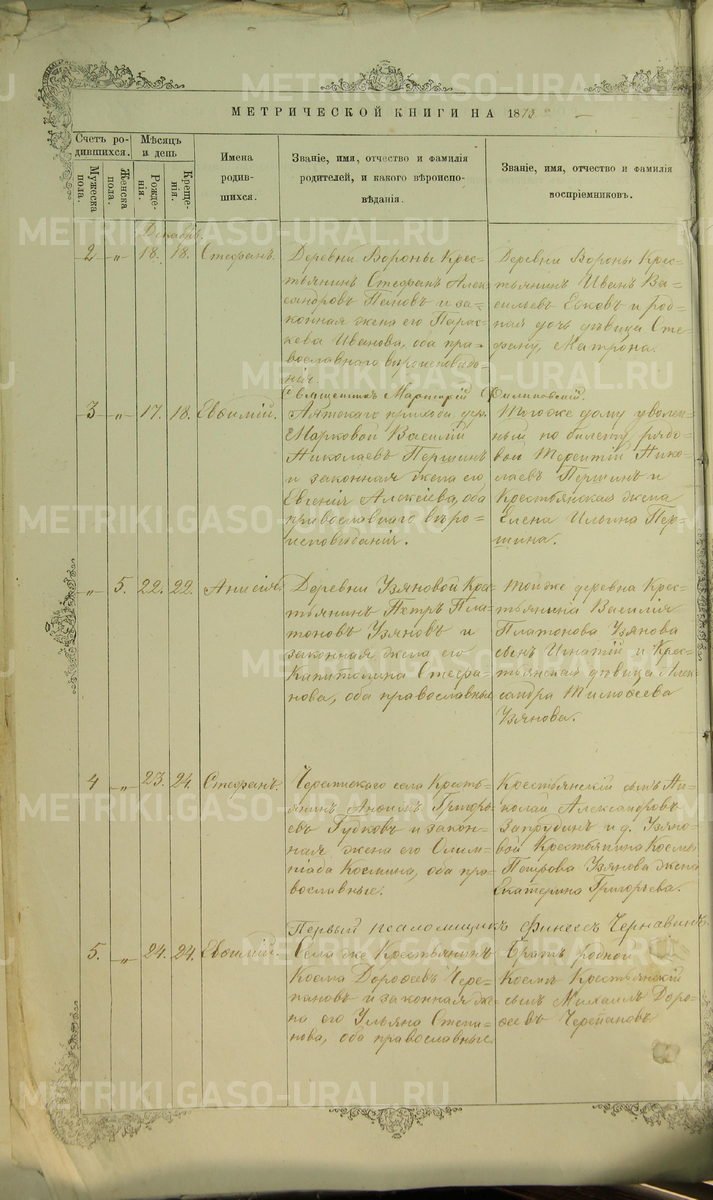 МЕТРИЧЕСКОЙ КНИГИ НА 1873
Счетъ ро-
дившихся.
Мужеска
пола.
Женска
пола.
Мѣсяцъ
и день
Рожде-
нія.
Креще-
нія.
Имена
родив-
шихся.
Званіе, имя, отчество и фамилія
родителей, и какого вѣроиспо-
вѣданія.
Званіе, имя, отчество и фамилія
воспріемниковъ.
Декабрь.
2 „ 18. 18. Стефанъ.
Деревни Вороны Крес-
тьянинъ Стефанъ Алек-
сандровъ Поповъ и за-
конная жена его Парас-
кева Иванова, оба пра-
вославнаго вѣроисповѣда-
нія.
Деревни Вороны Крес-
тьянинъ Иванъ Ва-
сильевъ и род-
ная дочь дѣвица Сте-
фану, Матрона.
Священникъ
3 „ 17. 18. Евѳимій.
Аятскаго прихода дер.
Марковой Василій
Николаевъ Першинъ
и законная жена его
Евгенія Алексіева, оба
православнаго вѣро-
исповѣданія.
Тогоже дому уволен-
ный по билету рядо-
вой Терентій Нико-
лаевъ Першинъ и
Крестьянская жена
Елена Ильина Пер-
шина.
„ 5. 22. 22. Анисія.
Деревни Узяновой Кре-
стьянинъ Петръ Пла-
тоновъ Узяновъ и
законная жена его
Капитолина Стефа-
нова, оба православные
Тойже деревни Крес-
тьянина Василія
Платонова Узянова
сынъ Игнатій и Крес-
тьянская дѣвица Алек-
сандра Тимоѳеева
Узянова.
4 „ 23. 24. Стефанъ.
села Кресть-
янинъ Григорь-
евъ Губковъ и закон-
ная жена его Олим-
піада Космина, оба пра-
вославные.
Крестьянскій сынъ Ни-
колай Александровъ
Запрудинъ и д. Узяно-
вой Крестьянина Космы
Петрова Узянова жена
Екатерина Григорьева.
Первый псаломщикъ Финеесъ Чернавинъ.
5. „ 24. 24. Евѳимій.
Села же Крестьянинъ
Косма Дороѳеевъ Чере-
пановъ и законная же-
на его Ульяна Степа-
нова, оба православные.
Братъ родной
Космѣ Крестьянскій
сынъ Михаилъ Доро-
ѳеевъ Черепановъ
METRIKI.GASO-URAL.RU